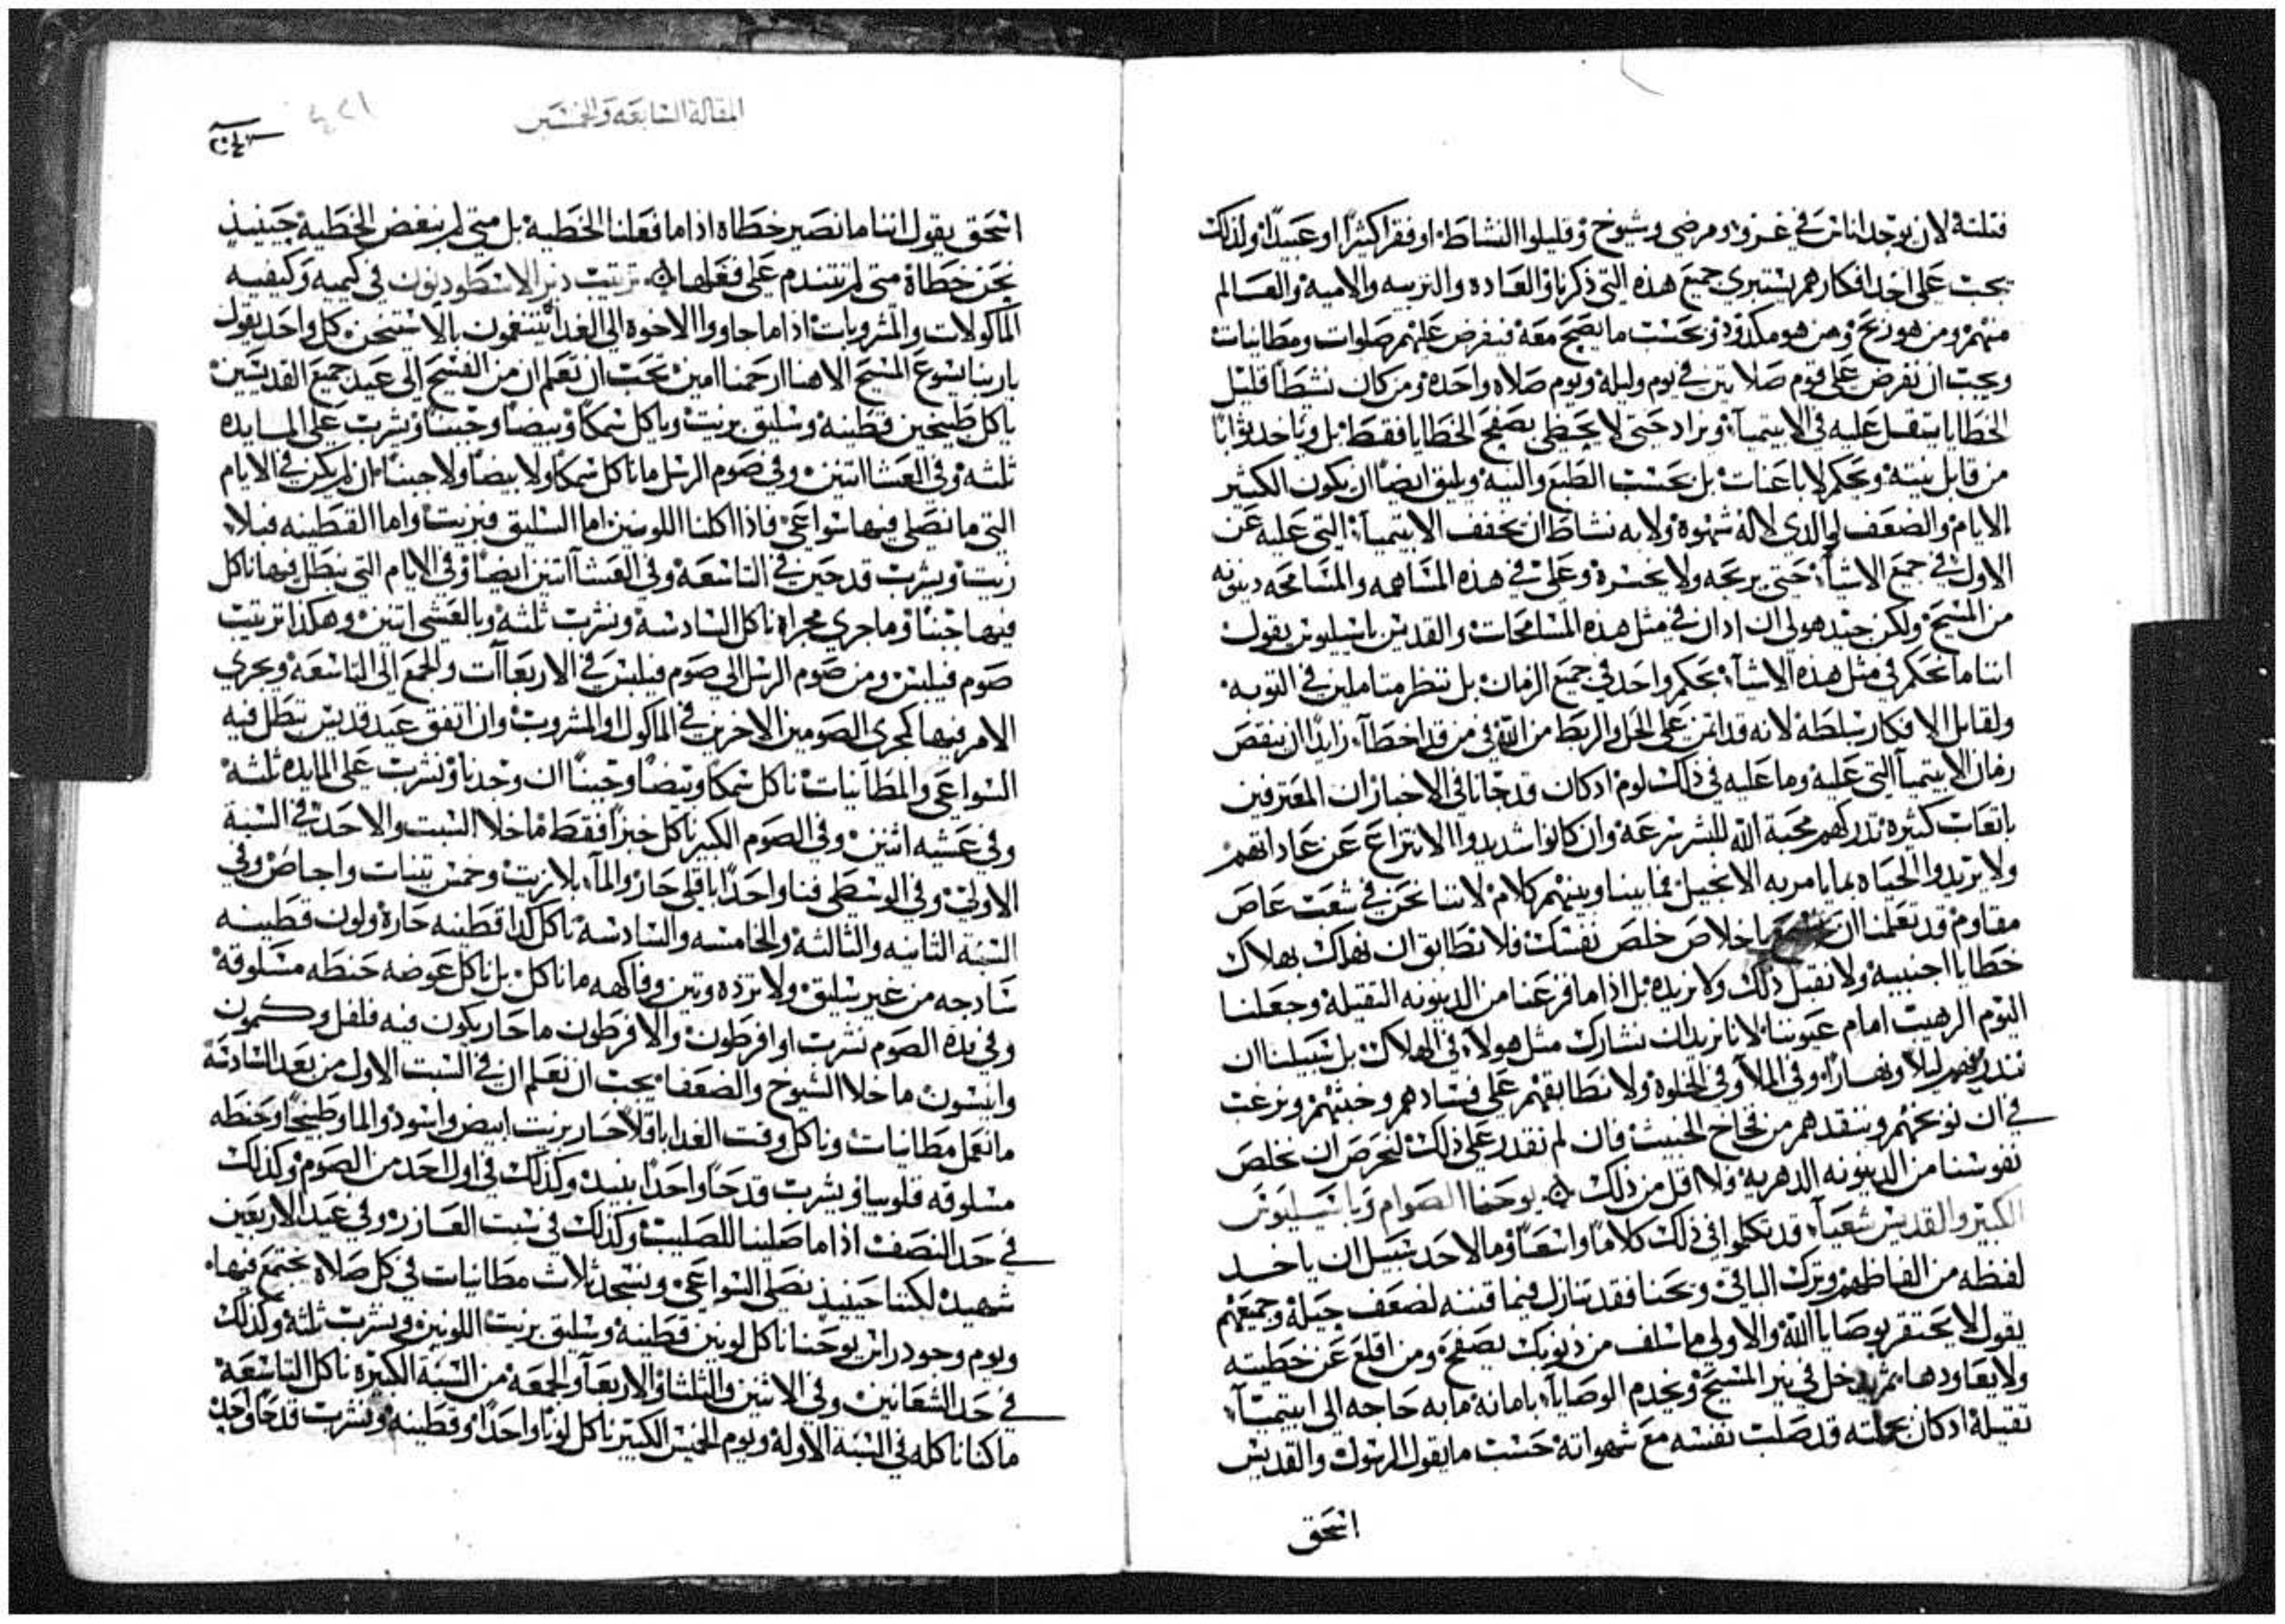 فتلته لان يوجد اناس في غزوه ومرضى وشيوخ وقليلوا النشاط او فقرا كثيرا او عبيدا ولذلك
يجب على اخد افكارهم يستبري جميع هذه التي ذكرنا والعاده والتربيه والاميه والعالم
منهم ومن هو وبحسب ما يصح معه فيفرض عليهم صلوات ومطانيات
ويجب ان نفرض على قوم صلاتين في يوم وليله ويوم صلاه واحده ومن كان نشطا قليل
الخطايا يثقل عليه في الابيتميآ ويزاد حتى لا يحظى بصفح الخطايا فقط بل وياخد ثوابا
من قابل نيته ويحكم لا باعنات بل بحسب الطبع والنيه ويليق ايضا ان يكون الكبير
الايام والضعف والذي لا له شهوه ولا به نشاط ان يخفف الابيتميآ التي عليه عن
الاول في جميع الاشيآ حتى يربحه ولا يخسره وعلى في هذه المساهمه والمسامحه دينونه
من المسيح ولكن جيد هو لي ان ادان في مثل هذه المسامحات والقديس باسيليوس يقول
اننا ما نحكم في مثل هذه الاشيآ بحكم واحد في جميع الزمان بل ننظر متاملين في التوبه
ولقابل الافكار سلطه لانه قد اتمن على الحل والربط من الله في من قد اخطآ زايدا ان ينقص
زمان الابيتميآ التي عليه وما عليه في ذلك لوم اد كان قد جانا في الاخبار ان المعترفين
باتعاب كثيره تدركهم محبة الله للبشر بسرعه وان كانوا شديدوا الانتزاع عن عاداتهم
ولا يريدوا الحياه بما يامر به الانجيل فما بيننا وبينهم كلام لاننا نحن في شعب عاص
مقاوم قد تعلمنا ان يا خلاص خلص نفسك فلا نطابق ان نهلك بهلاك
خطايا اجنبيه ولا نقبل ذلك ولا نريده بل اذا ما فزعنا من الدينونه الثقيله وجعلنا
اليوم الرهيب امام عيوننا لا نريد ان نشارك مثل هولآ في الهلاك بل سبيلنا ان
نندرهم ليلا ونهارا وفي الملا وفي الخلوه ولا نطابقهم على فسادهم وخبثهم ونرغب
في ان نوبخهم وننقدهم من فخاخ الخبيث فان لم نقدر على ذلك لنحرص ان نخلص
نفوسنا من الدينونه الدهريه ولا اقل من ذلك يوحنا الصوام وباسيليوس
الكبير والقديس شعيآ قد تكلموا في ذلك كلاما واسعا وما لاحد سبيل ان ياخد
لفظه من الفاظهم ويترك الباقي ونحنا فقد نتنازل فيما قننه لضعف جيله وجميعهم
يقول لا يحتقر بوصايا الله والاولي ما سلف من ذنوبك يصفح ومن اقلع عن خطيته
ولا يعاودها ثم يدخل في نير المسيح ويخدم الوصايآ بامانه ما به حاجه الى ابيتميآ
ثقيله اد كان بجملته قد صلب نفسه مع شهواته حسب ما يقول الرسول والقديس
اسحق
المقالة السابعه والخمسين
٤٢١
اسحق يقول اننا ما نصير خطاه اذا ما فعلنا الخطيه بل متى لم نبغض الخطيه حينيذ
نحن خطاة متى لم نتندم على فعلها ترتيب دير الاسطوديون في كميه وكيفيه
الماكولات والمشروبات اذا ما جاووا الاخوه الى الغدا يتنغمون بالاستيخن كل واحد يقول
يا ربنا يسوع المسيح الاهنا ارحمنا امين يجب ان نعلم ان من الفسح الى عيد جميع القديسين
ياكل طبيخين قطنيه وسليق بزيت وياكل سمكا وبيضا وجبنا ويشرب على المايده
ثلثه وفي العشا اتنين وفي صوم الرسل ما ناكل سمكا ولا بيضا ولا جبنا ان لم يكن في الايام
التي ما نصلي فيها سواعي فاذا اكلنا اللونين اما السليق فبزيت واما القطنيه فبلا
زيت ويشرب قدحين في التاسعه وفي العشا اتنين ايضا وفي الايام التي يبطل فيها ناكل
فيها جبنا وما جرى مجراه ناكل السادسه ونشرب ثلثه وبالعشي اتنين وهكذا ترتيب
صوم فيلبس ومن صوم الرسل الى صوم فيلبس في الاربعاآت والجمع الى التاسعه ويجري
الامر فيها كمجرى الصومين الاخرين في الماكول والمشروب وان اتفق عيد قديس يبطل فيه
السواعي والمطانيات ناكل سمكا وبيضا وجبنا ان وجدنا ونشرب على المايده ثلثه
وفي عشيه اثنين وفي الصوم الكبير ناكل خبزا فقط ما خلا السبت والاحد في السبة
الاولى وفي الوسطى فناواحدا باقلى حار والمآ بلا زيت وخمس تينات واجاص وفي
السبة الثانيه والثالثه والخامسه والسادسه ناكل كدا قطنيه حاره ولون قطنيه
سادجه من غير سليق ولا نزده وتين وفاكهه ما ناكل بل ناكل عوضه حنطه مسلوقه
وفي بدة الصوم نشرب او افرطون والافرطون ما حار يكون فيه فلفل وكمون
وانيسون ما خلا الشيوخ والضعفا يجب ان نعلم ان في السبت الاول من بعد السادسه
ما نعمل مطانيات وناكل وقت الغدا باقلا حار بزيت ابيض واسود والما وطبيخا وحنطه
مسلوقه قلوبيا ونشرب قدحا واحدا بنبيد وكذلك في اول احد من الصوم وكذلك
في حد النصف اذا ما صلينا للصليب وكذلك في سبت العازر وفي عيد الاربعين
شهيد لكننا حينيذ نصلي السواعي ونسجد ثلاث مطانيات في كل صلاة نجتمع فيها
ويوم وجود راس يوحنا ناكل لونين قطنيه وسليق بزيت اللونين ونشرب ثلثه وكذلك
في حد الشعانين وفي الاثنين والثلثا والاربعآ والجمعه من السبة الكبيره ناكل التاسعة
ما كنا ناكله في السبة الاوله ويوم الخميس الكبير ناكل لونا واحدا وقطنيه ونشرب قدحا واحد